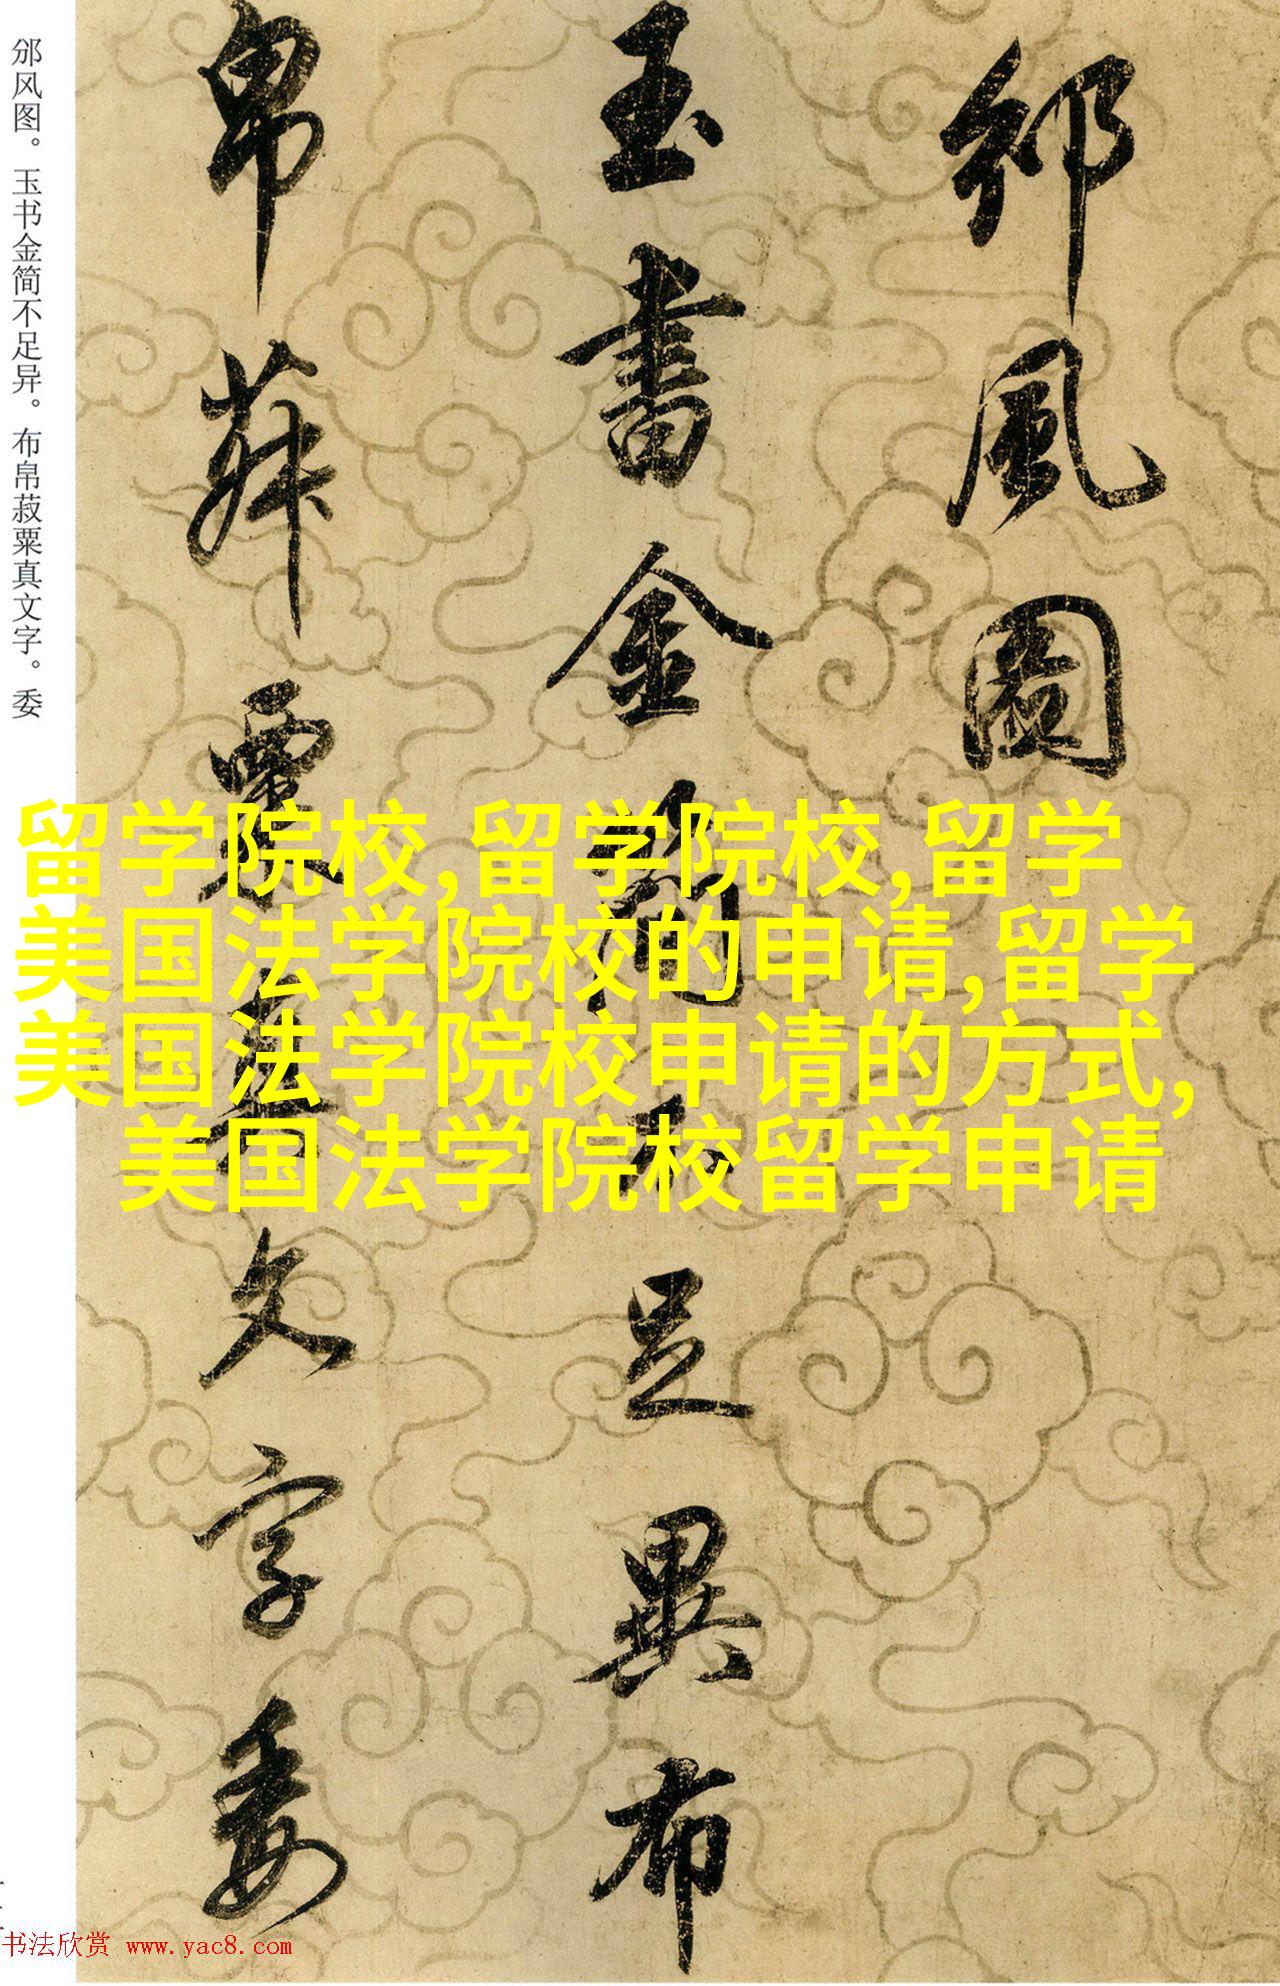 邠風圖
玉書金簡不足異布
帛菽粟真文字委
邠风图。玉书金简不足异。布帛菽粟真文字。委
留学院校,留学院校,留学
美国法学院校的申请,留学
美国法学院校申请的方式,
美国法学院校留学申请
书法欣赏 www.yac8.com